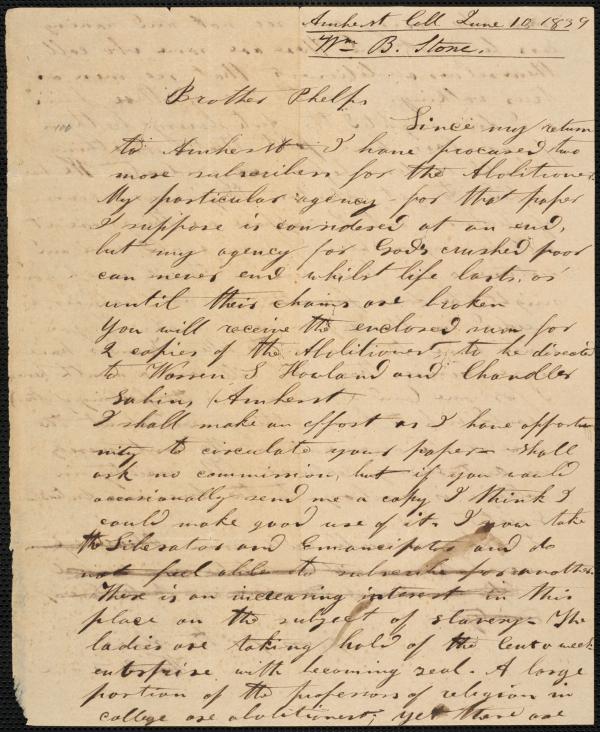 Amherst Coll June 10, 1839
Wm B. Stone.
Brother Phelps
Since my return
to Amherst I have procured two
more subscribers for the Abolitionest
My particular agency for that paper
I suppose is considered at an end,
but my agency for God's crushed poor
can never end whilst life lasts, or
until their chains are broken
You will receive the enclosed sum for
2 copies of the Abolitionest to be directed
to Warren S Howland and Chandler
Sabins, Amherst
I shall make an effort as I have opportu
nity to circulate your paper shall
ask no commission, but if you would
occasionally send me a copy I think I
could make good use of it. I now take
the Liberator and Emancipator and do
not feel able to subscribe for another.
There is an increasing interest in this
place on the subject of slavery. The
ladies are taking hold of the Cent a week
enterprise with becoming zeal. A large
portion of the professors of religion in
college are abolitionest; yet there are